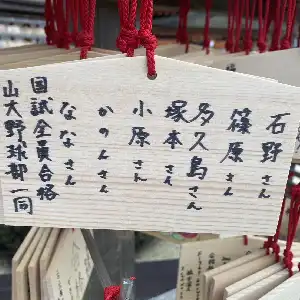 石野さん
篠原さん
多久島さん
塚本さん
小原さん
かのんさん
ななさん
国試全員合格
山大野球部一同